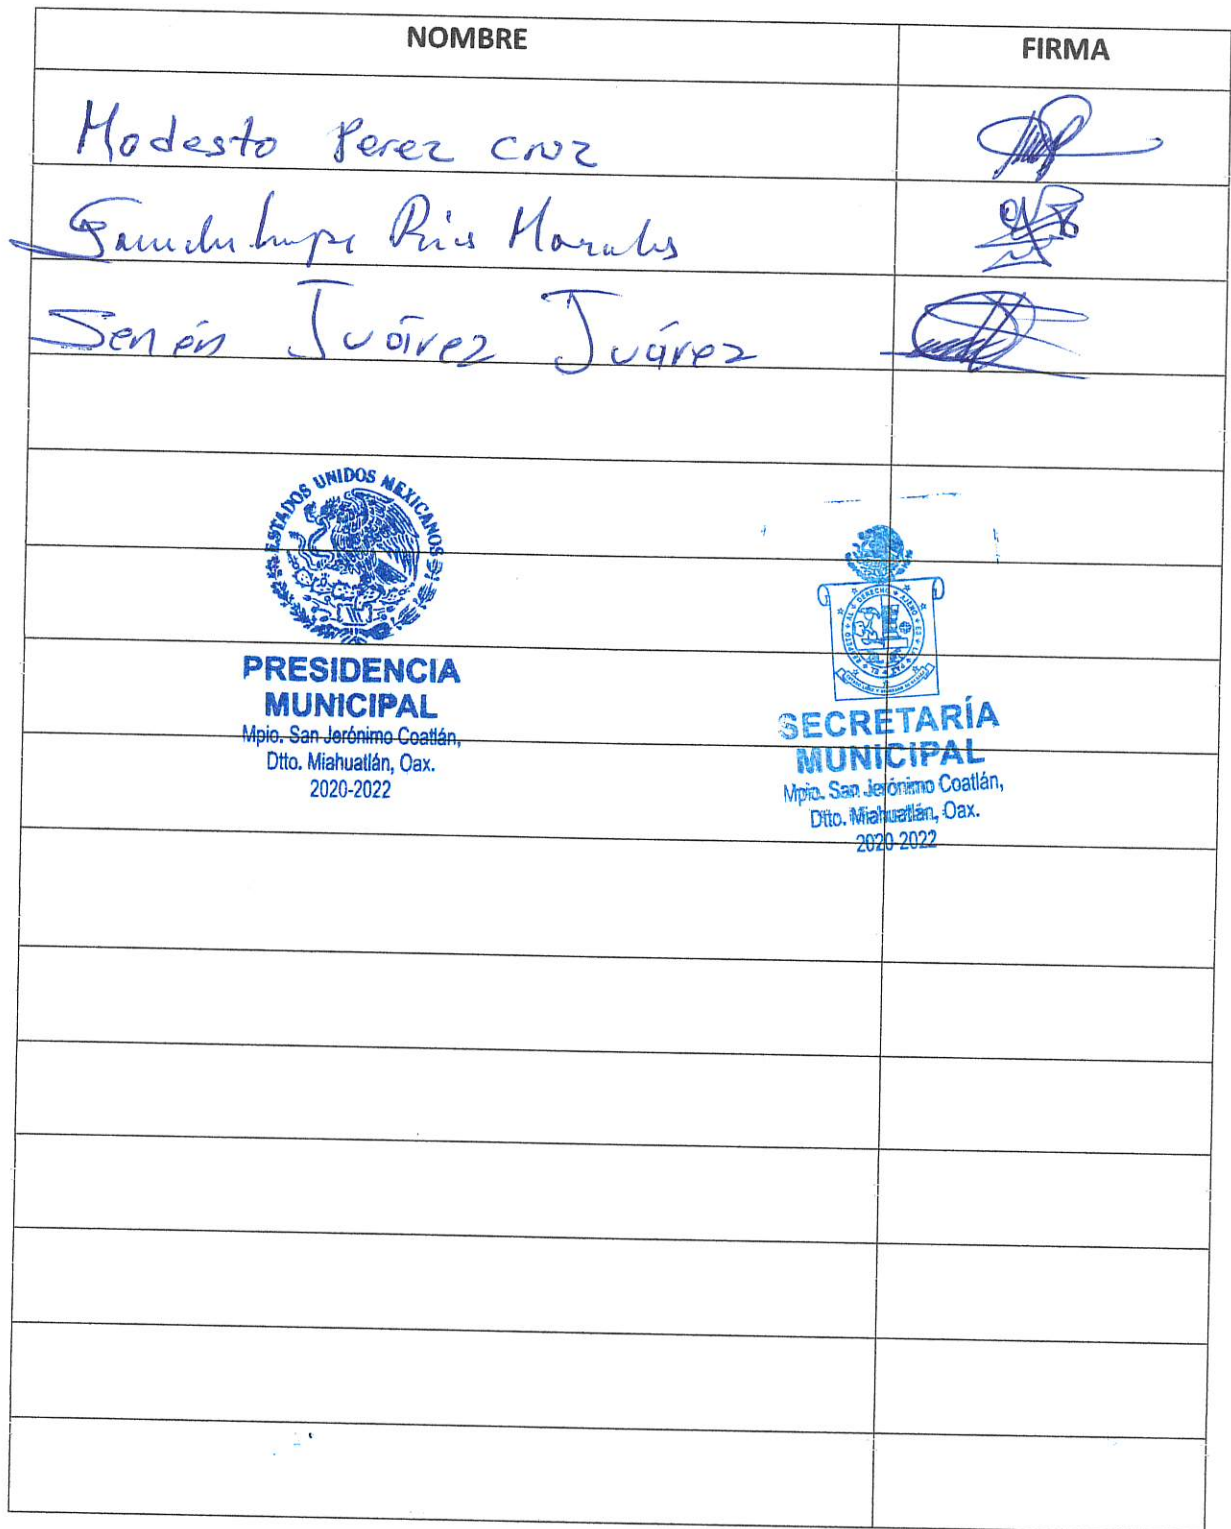 NOMBRE FIRMA
Modesto Perez cruz
Rios Morales
Senén Juárez Juárez
ESTADOS UNIDOS MEXICANOS
PRESIDENCIA
MUNICIPAL
Mpio. San Jerónimo Coatlán,
Dtto. Miahuatlán, Oax.
2020-2022
EL RESPETO AL DERECHO AJENO ES LA PAZ
SECRETARÍA
MUNICIPAL
Mpio. San Jerónimo Coatlán,
Dtto. Miahuatlán, Oax.
2020-2022